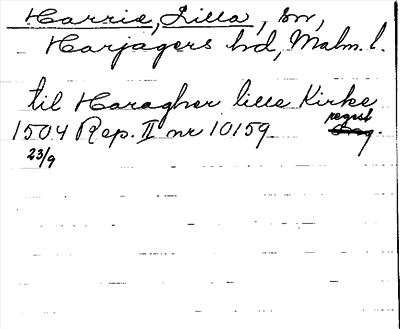 Harrie, Lilla, sn,
Harjagers hd, Malm. l.
til Haragher lille Kirke
1504 Rep. II nr 10159. regist
23/9